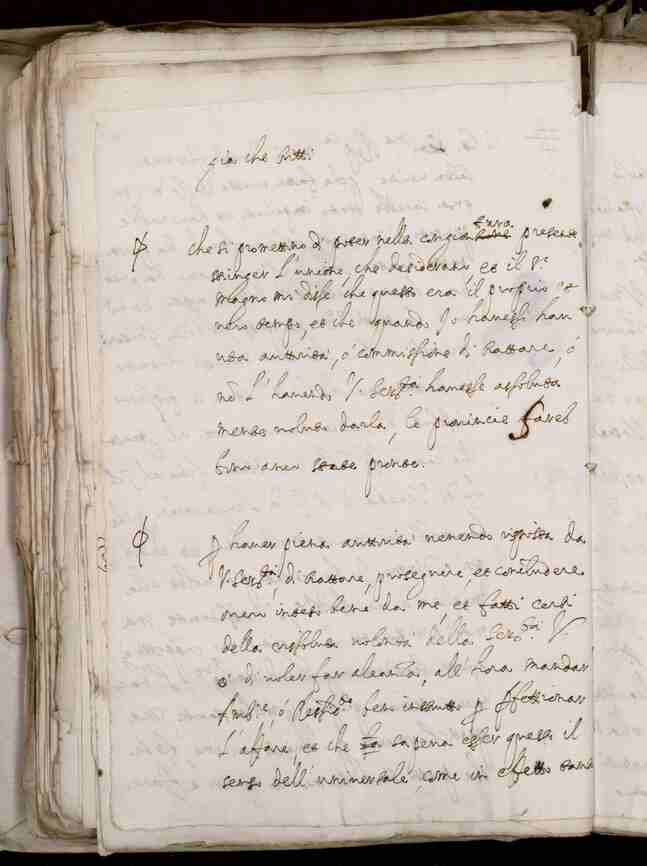 già che tutti
che si promettono di poter nella congion tura presente
stringer l'unione, che desiderano et il Sr
magno mi disse che questo era il proprio, et
vero tempo, et che quando Io havessi hav
uta auttorità, ò commissione di trattare, ò
nō l'havendo V. Sertà havesse assoluta
mente voluto darla, le provincie sareb
bero anco state pronte.
p haver piena auttorità venendo risposta da
V. Sertà, di trattare, proseguire, et concludere
inteso bene da me, et fatti certi
della risoluta volontà della Sertà V.
ò di voler far aleanza, all'hora mandar
Ambre, ò Residte ben instrutto p pffettionar
l'affare, et che sapeva esser questo il
senso dell'universale, come in effetto